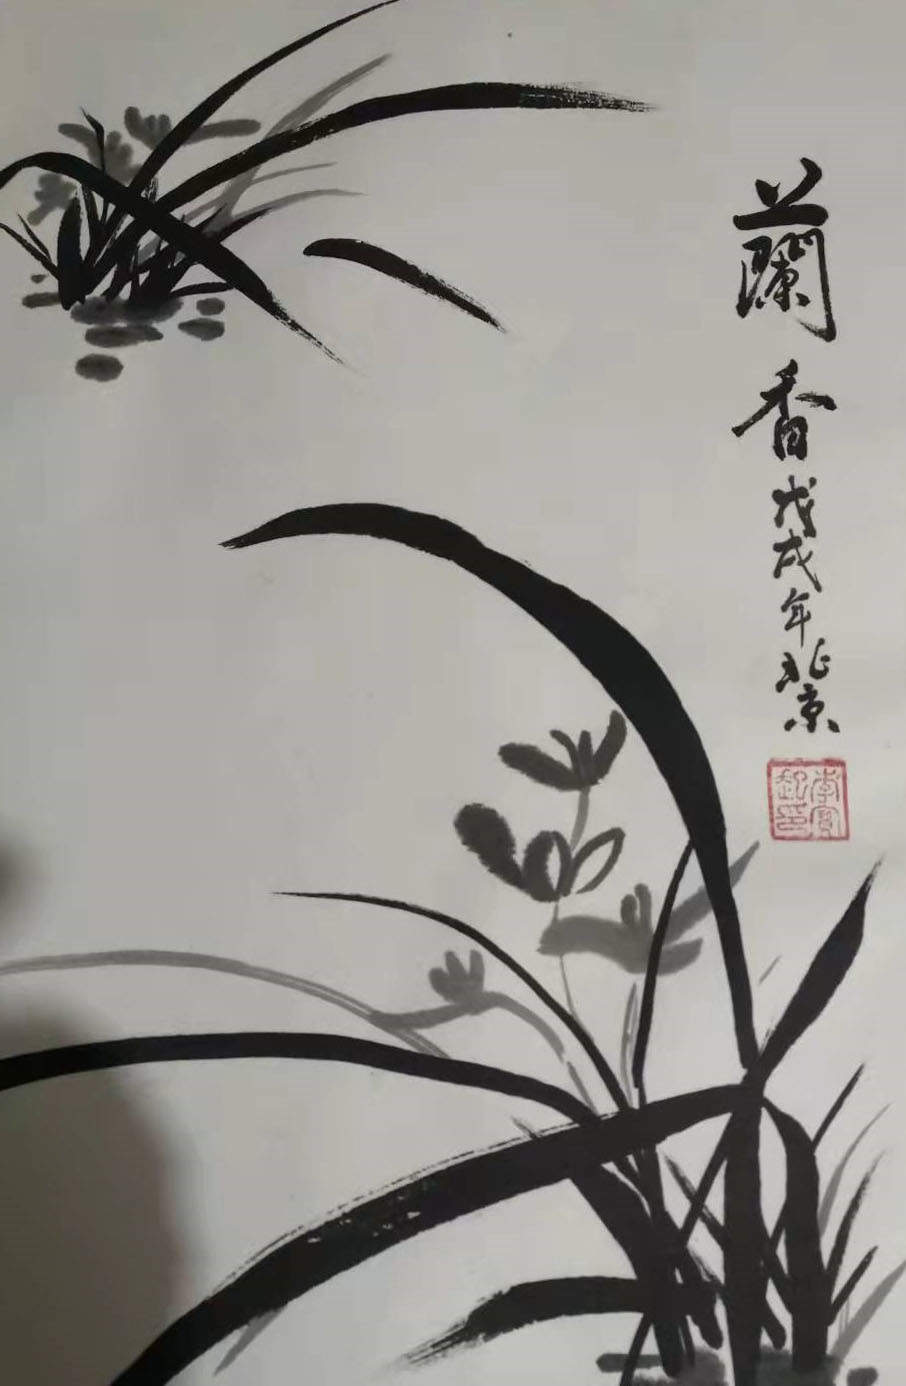 蘭香戊戌年北京